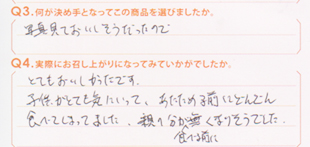 Q3.何が決め手となってこの商品を選びましたか。
写真見ておいしそうだったので
Q4.実際にお召し上がりになってみていかがでしたか。
とてもおいしかったです。
子供がとても気にいって、あたためる前にどんどん
食べてしまってました。親の分が無くなりそうでした。
食べる前に